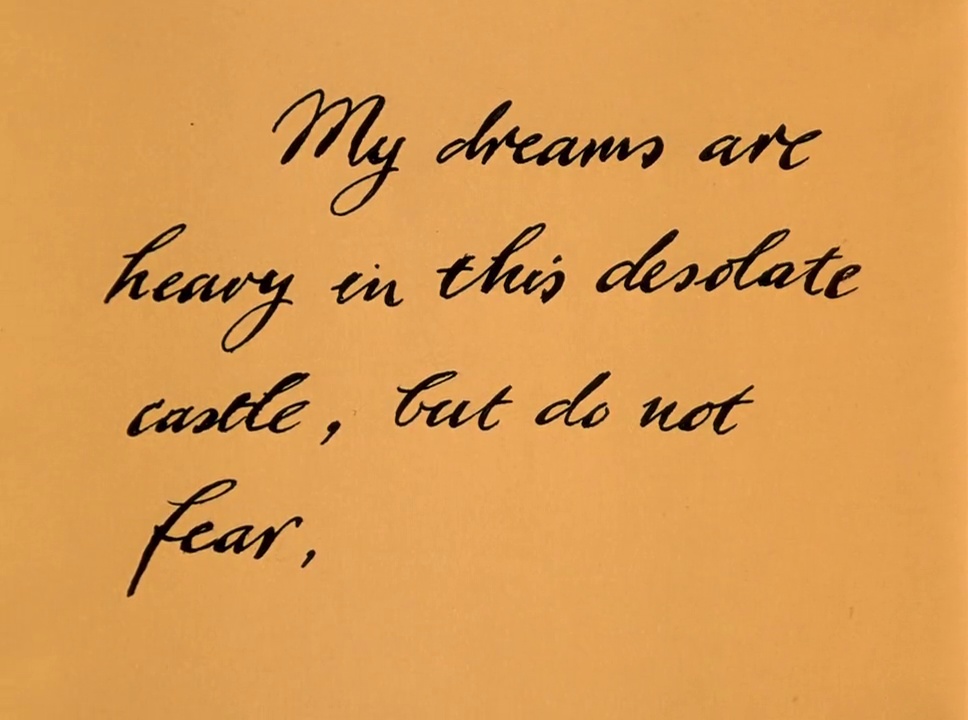 My dreams are
heavy in this desolate
castle, but do not
fear,